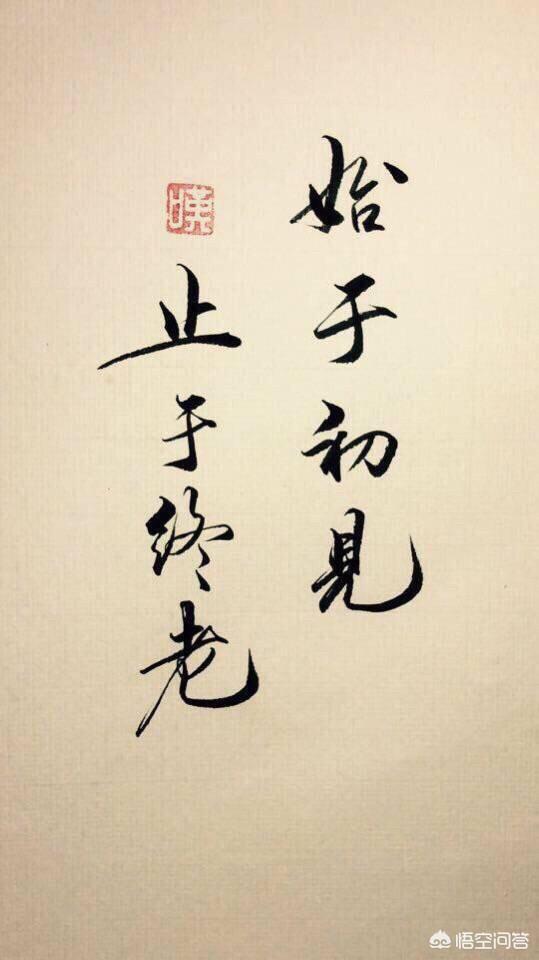 始于初見
止于終老
悟空问答